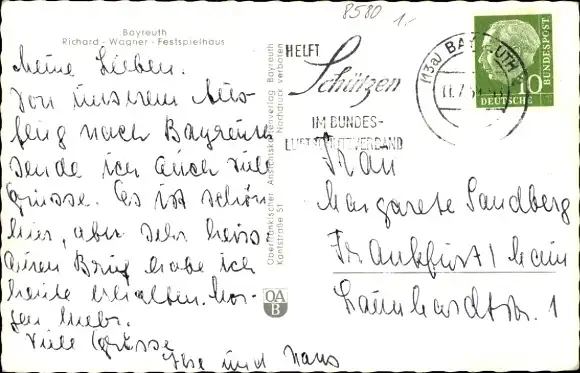 8580 1.-
Bayreuth
Richard-Wagner-Festspielhaus
Meine Lieben.
Von unserem Aus-
flug nach Bayreuth
sende ich Euch viele
Grüsse. Es ist schön
hier, aber sehr heiss.
Euren Brief habe ich
heute erhalten. Mor-
gen mehr.
Viele Grüsse
Ilse und Hans
Oberfränkischer Ansichtskartenverlag Bayreuth
Kantstraße 51 Nachdruck verboten
OA
B
HELFT
Schützen
IM BUNDES-
LUFTSCHUTZVERBAND
(13a) BAYREUTH
11.7.5
10
DEUTSCHE
BUNDESPOST
Frau
Margarete Sandberg
Frankfurt/Main
1